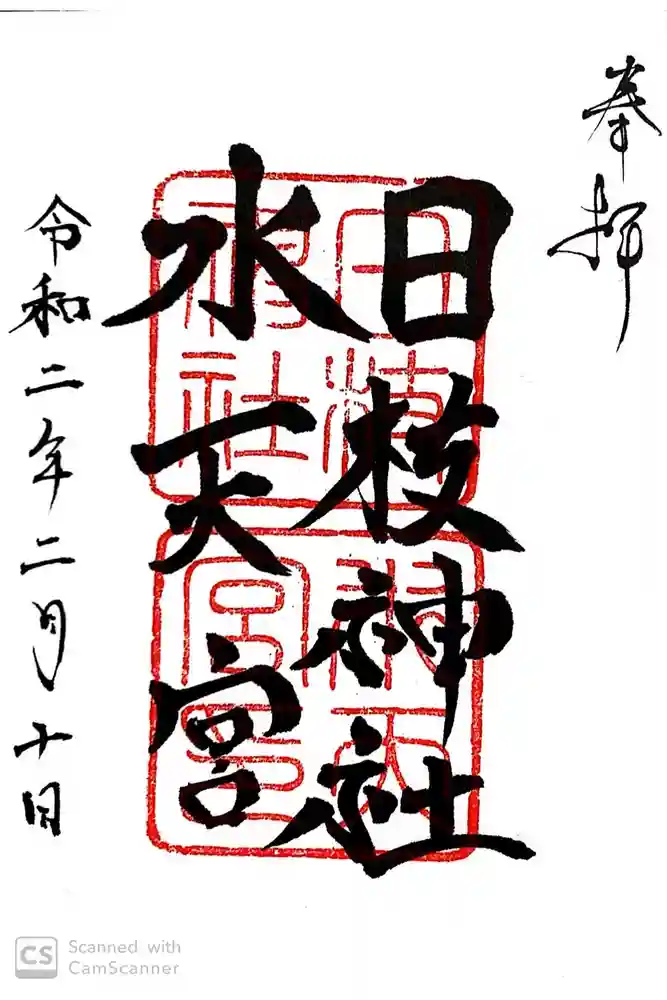 奉拝
日枝神社
水天宮
令和二年二月十日
水天
宮印
CS
Scanned with
CamScanner